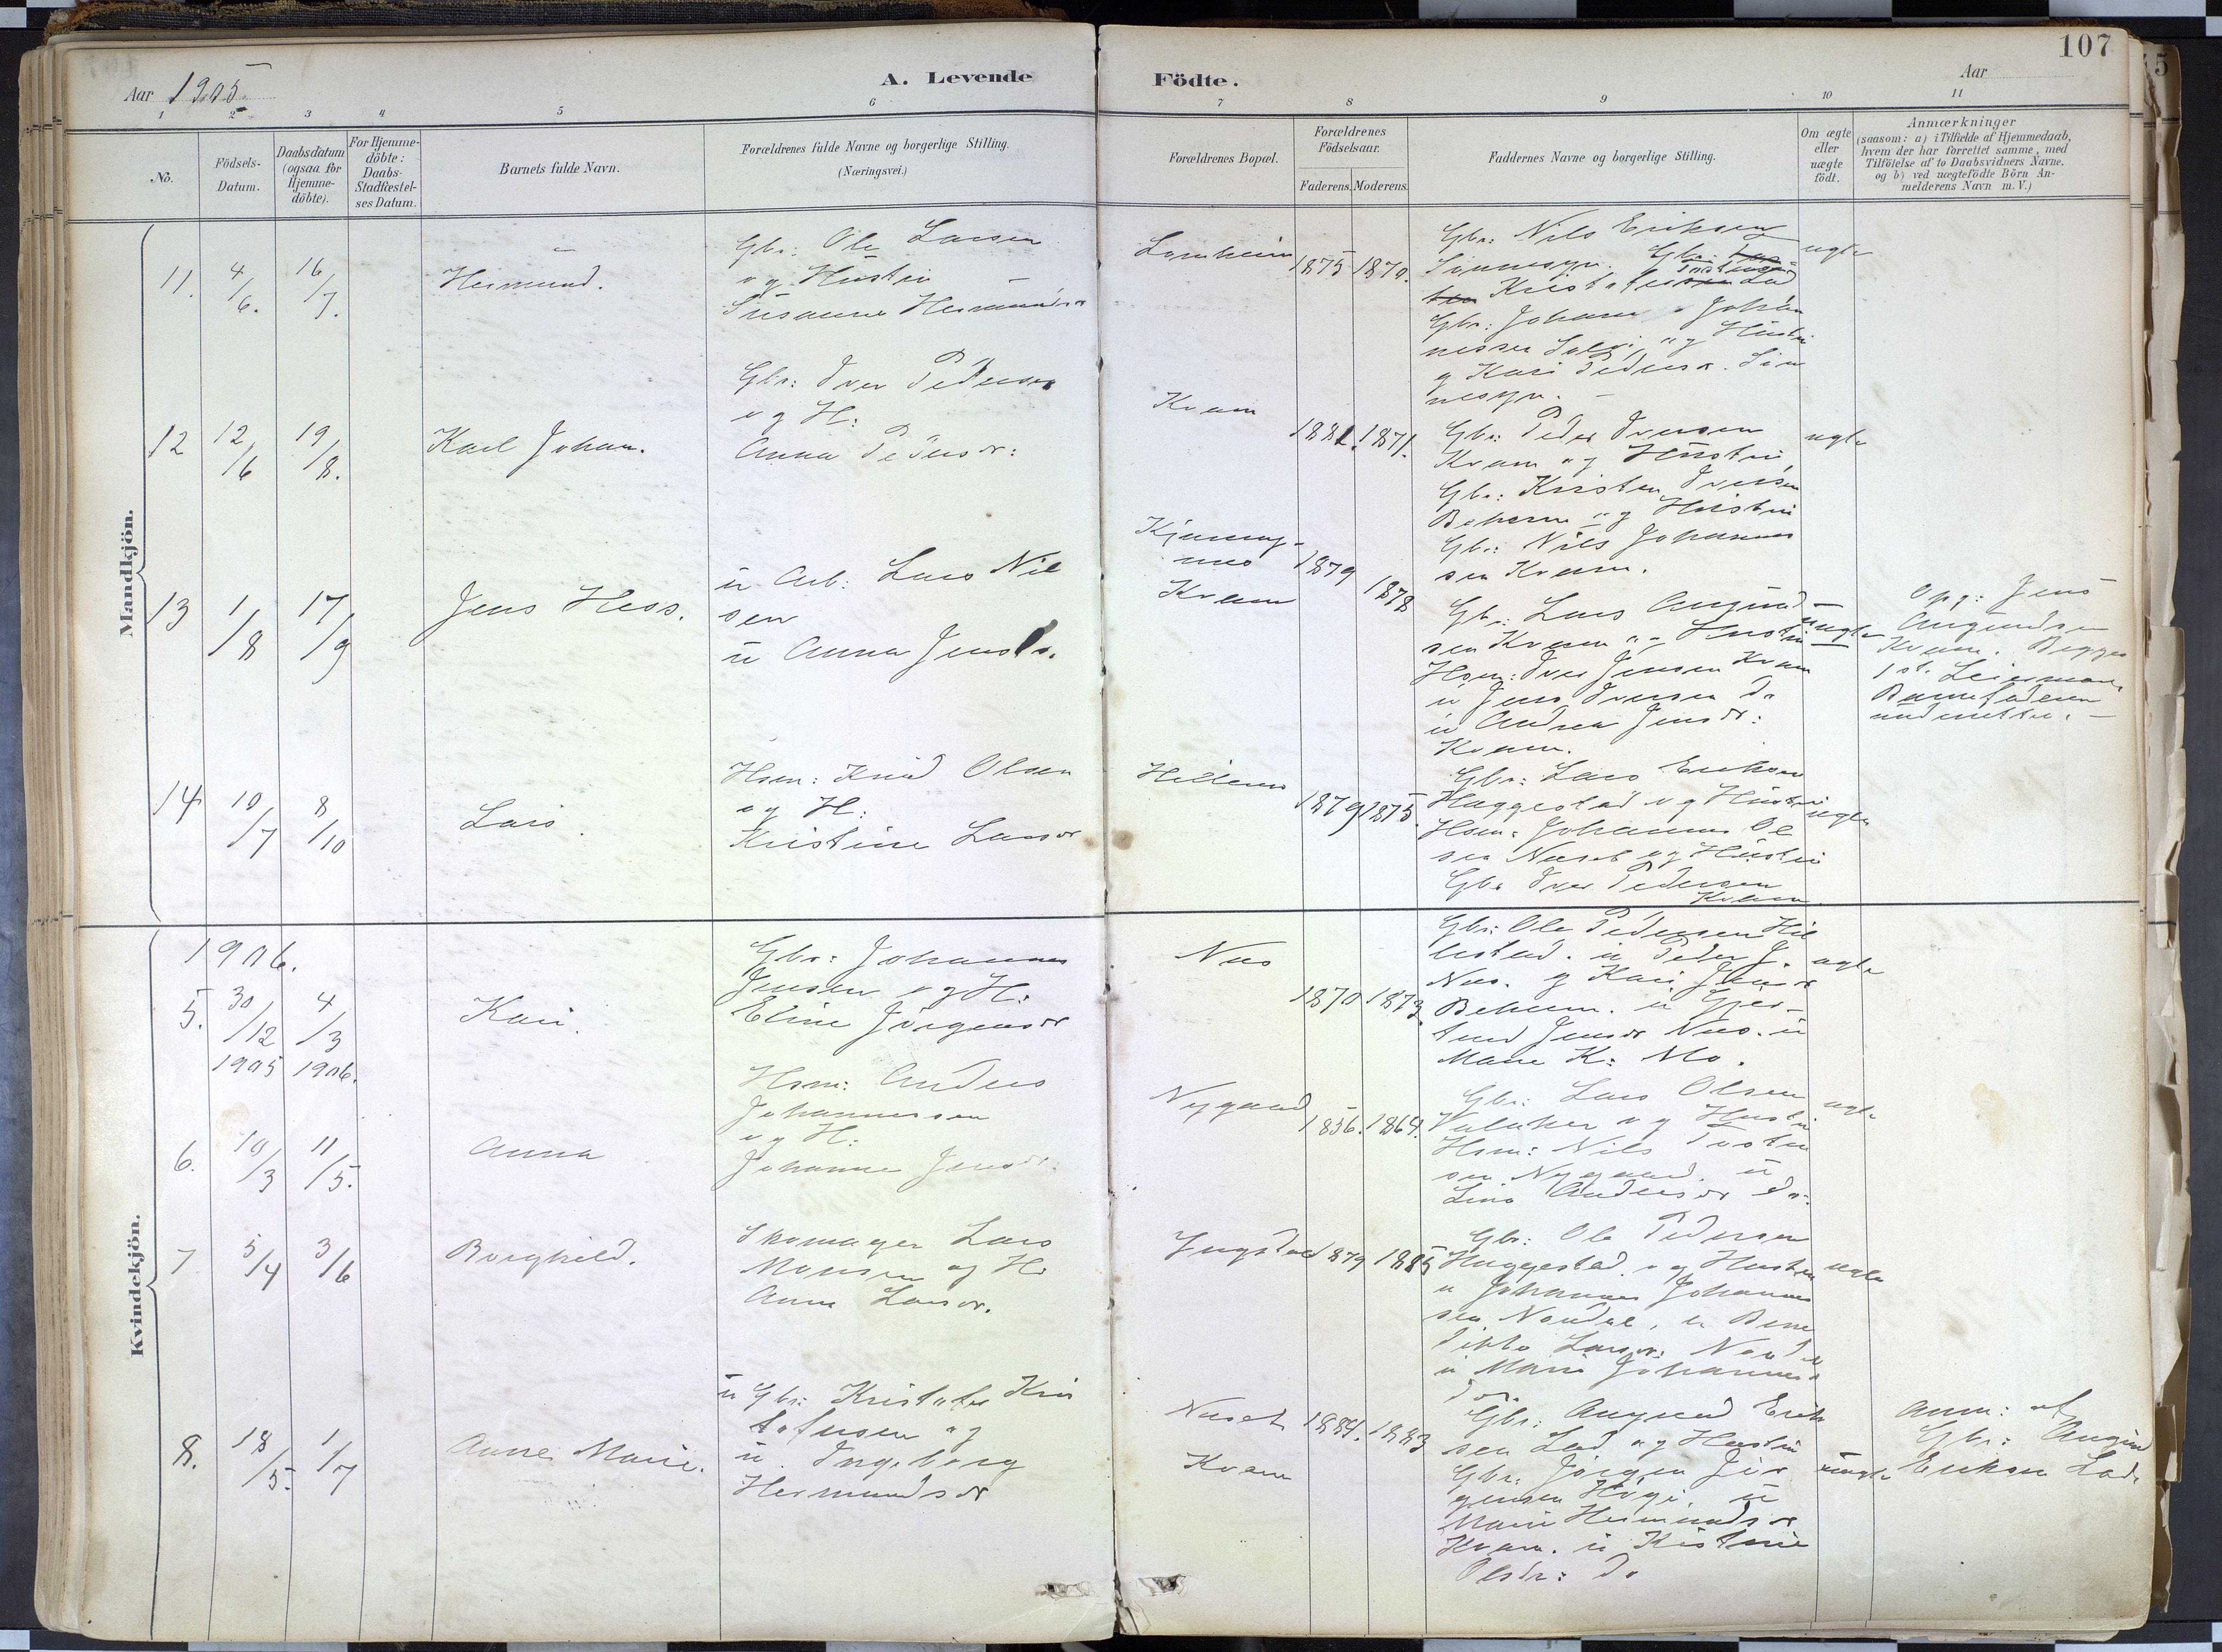 107
Aar 1905
A. Levende
Födte.
Aar
1 2 3 4 5 6 7 8 9 10 11
No.
Födsels-
Datum.
Daabsdatum
(ogsaa for
Hjemme-
döbte).
For Hjemme-
döbte:
Daabs-
Stadfæstel-
ses Datum.
Barnets fulde Navn.
Forældrenes fulde Navne og borgerlige Stilling.
(Næringsvei.)
Forældrenes Bopæl.
Forældrenes
Födselsaar.
Faderens. Moderens.
Faddernes Navne og borgerlige Stilling.
Om ægte
eller
uægte
födt.
Anmærkninger
(saasom: a) i Tilfælde af Hjemmedaab,
hvem der har forrettet samme, med
Tilföielse af to Daabsvidners Navne.
og b) ved uægtefödte Börn An-
melderens Navn m. V.)
Mandkjön.
11. 4/6. 16/7.
Hermund.
Gbr: Ole Larsen
og Hustru
Susanne Hermundsdr
1875 1870.
Gbr: Nils Eriksen
Sinnesyn. Gbr:
Kristofersen Lad
Gbr: Johannes Johan
nessen og Hustru
og Kari Pedersdr. Sin
nesyn.
ægte
12 12/6 19/8.
Karl Johan.
Gbr: Iver Pedersen
og H:
Anna Pedersdr:
Kvam
1881. 1871.
Gbr: Peder Iversen
Kvam og Hustru
Gbr: Kristen Iversen
og Hustru
Gbr: Nils Johannes
sen Kvam.
ægte
13 1/8 17/9
Jens Hess.
u Arb: Lars Niel
sen
u Anna Jensdr.
Kvam
1879 1878
Gbr: Lars Angund
sen Kvam og Hustru
Hsm: Iver Jensen Kvam
u Jens Iversen do
u Andrea Jensdr:
Kvam.
uægte
Opg: Jens
Angundsen
Kvam. Begges
1st. Leiermaal
Barnefaderen
14 10/7 8/10
Lars.
Hsm: Knud Olsen
og H:
Kristine Larsdr
1879 1875.
Gbr: Lars Eriksen
Haggestad og Hustru
Hsm: Johannes Ol
sen Naset og Hustru
Gbr Iver Pedersen
Kvam.
ægte
Kvindekjön.
1906.
5. 30/12 4/3
1905 1906.
Kari.
Gbr: Johannes
Jensen og H:
Eline Jörgensdr
Nes
1870 1873.
Gbr: Ole Pedersen Hil
lestad. u Peder J.
Nes. og Kari Jensdr
u Gjer-
trud Jensdr Nes. u
Marie K: Mo.
ægte
6. 10/3 11/5.
Anna
Hsm: Anders
Johannessen
og H:
Johanne Jensdr.
Nygaard
1856. 1864.
Gbr: Lars Olsen
og Hustru
Hsm: Nils Tosten
sen Nygaard. u
Lina Andersdr do:
ægte
7 5/4 3/6
Borghild.
Skomager Lars
Monsen og H:
Anna Larsdr.
1879 1885
Gbr: Ole Pedersen
Haggestad og Hustru
u Johannes Johannes
sen Nondal, u Bene
dikte Larsdr: Nondal
u Marie Johannes
dr.
ægte
8. 18/5. 1/7
Anne Marie.
u Gbr: Kristofer Kris
tofersen og
u. Ingeborg
Hermundsdr
Naset
Kvam
1884. 1883
Gbr: Angund Erik
sen Lad og Hustru
Gbr: Jörgen Jör
gensen u
Marie Hermundsdr
Kvam. u Kristine
Olsdr: do
uægte
Anm: af
Gbr: Angun
Eriksen Lad.